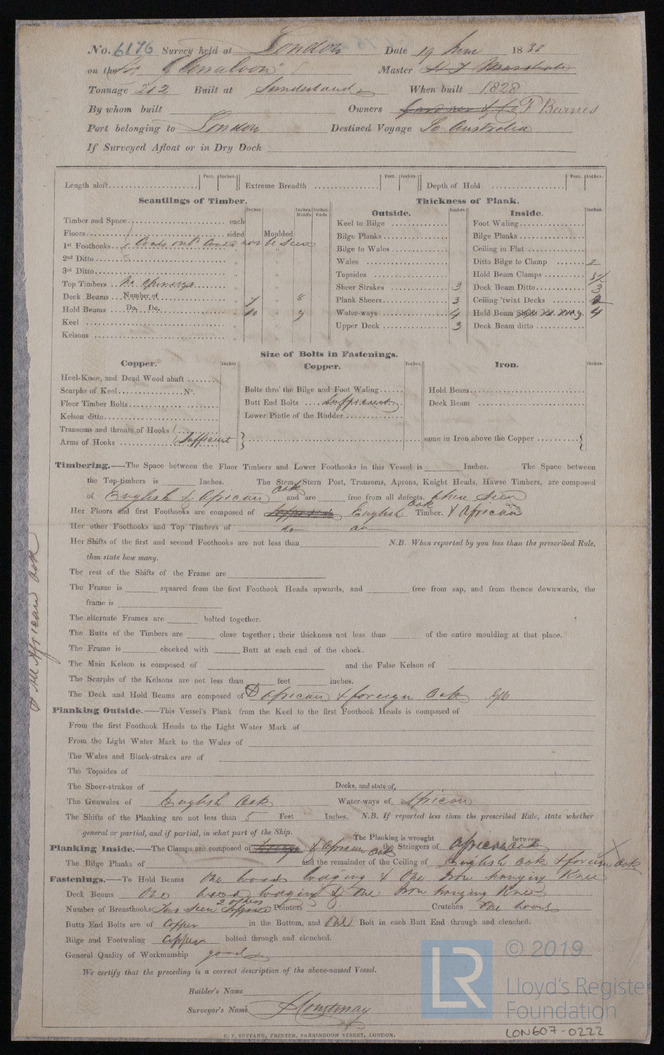 No. 6176 Survey held at London Date 19 June 1838
on the Sr. Master
Tonnage 212 Built at Sunderland When built 1828
By whom built Owners T Barnes
Part belonging to London Destined Voyage To Australia
If Surveyed Afloat or in Dry Dock
Length aloft Feet. Inches. Extreme Breadth Feet. Inches. Depth of Hold Feet. Inches.
Scantlings of Timber. Thickness of Plank.
Outside. Inside.
Timber and Space each Keel to Bilge Foot Waling
Floors sided Moulded Bilge Planks Bilge Planks
1st Foothooks be seen Bilge to Wales Ceiling in Flat
2nd Ditto Wales Ditto Bilge to Clamp 2
3rd Ditto Topsides Hold Beam Clamps
Top Timbers No openings Sheer Strakes 3 Deck Beam Ditto 3
Deck Beams Number of Plank Sheers 3 Ceiling 'twixt Decks 2
Hold Beams Do. Do. 10 Water-ways 4 Hold Beam 4
Keel Upper Deck 3 Deck Beam ditto
Kelsons
Size of Bolts in Fastenings.
Copper. Copper. Iron.
Heel-Knee, and Dead Wood abaft Bolts thro' the Bilge and Foot Waling Hold Beam
Scarphs of Keel No. Butt End Bolts sufficient Deck Beam
Floor Timber Bolts Lower Pintle of the Rudder
Kelson ditto
Transoms and throats of Hooks
Arms of Hooks Sufficient same in Iron above the Copper
Timbering.—The Space between the Floor Timbers and Lower Foothooks in this Vessel is Inches. The Space between
the Top-timbers is Inches. The Stem, Stern Post, Transoms, Aprons, Knight Heads, Hawse Timbers, are composed
of English & African oak and are free from all defects. when seen
Her Floors and first Foothooks are composed of English oak Timber. & African
Her other Foothooks and Top Timbers of do do
Her Shifts of the first and second Foothooks are not less than N.B. When reported by you less than the prescribed Rule,
then state how many.
The rest of the Shifts of the Frame are
The Frame is squared from the first Foothook Heads upwards, and free from sap, and from thence downwards, the
frame is
The alternate Frames are bolted together.
The Butts of the Timbers are close together; their thickness not less than of the entire moulding at that place.
The Frame is chocked with Butt at each end of the chock.
The Main Kelson is composed of and the False Kelson of
The Scarphs of the Kelsons are not less than feet inches.
The Deck and Hold Beams are composed of African & foreign Oak
African oak
Planking Outside.—This Vessel's Plank from the Keel to the first Foothook Heads is composed of
From the first Foothook Heads to the Light Water Mark of
From the Light Water Mark to the Wales of
The Wales and Black-strakes are of
The Topsides of
The Sheer-strakes of Decks, and state of,
The Gunwales of English Oak Water-ways of African
The Shifts of the Planking are not less than 5 Feet Inches. N.B. If reported less than the prescribed Rule, state whether
general or partial, and if partial, in what part of the Ship. The Planking is wrought between
Planking Inside.—The Clamps are composed of & African oak the Stringers of African oak
The Bilge Planks of and the remainder of the Ceiling of English oak & foreign oak
Fastenings.—To Hold Beams One wood lodging & One Iron hanging Knee
Deck Beams One wood lodging & One Iron hanging Knee
Number of Breasthooks Two seen 2 others Pointers Crutches One
Butts End Bolts are of Copper in the Bottom, and One Bolt in each Butt End through and clenched.
Bilge and Footwaling Copper bolted through and clenched.
General Quality of Workmanship good
We certify that the preceding is a correct description of the above-named Vessel.
Builder's Name
Surveyor's Name
LR © 2019
Lloyd's Register
Foundation
LON607-0222